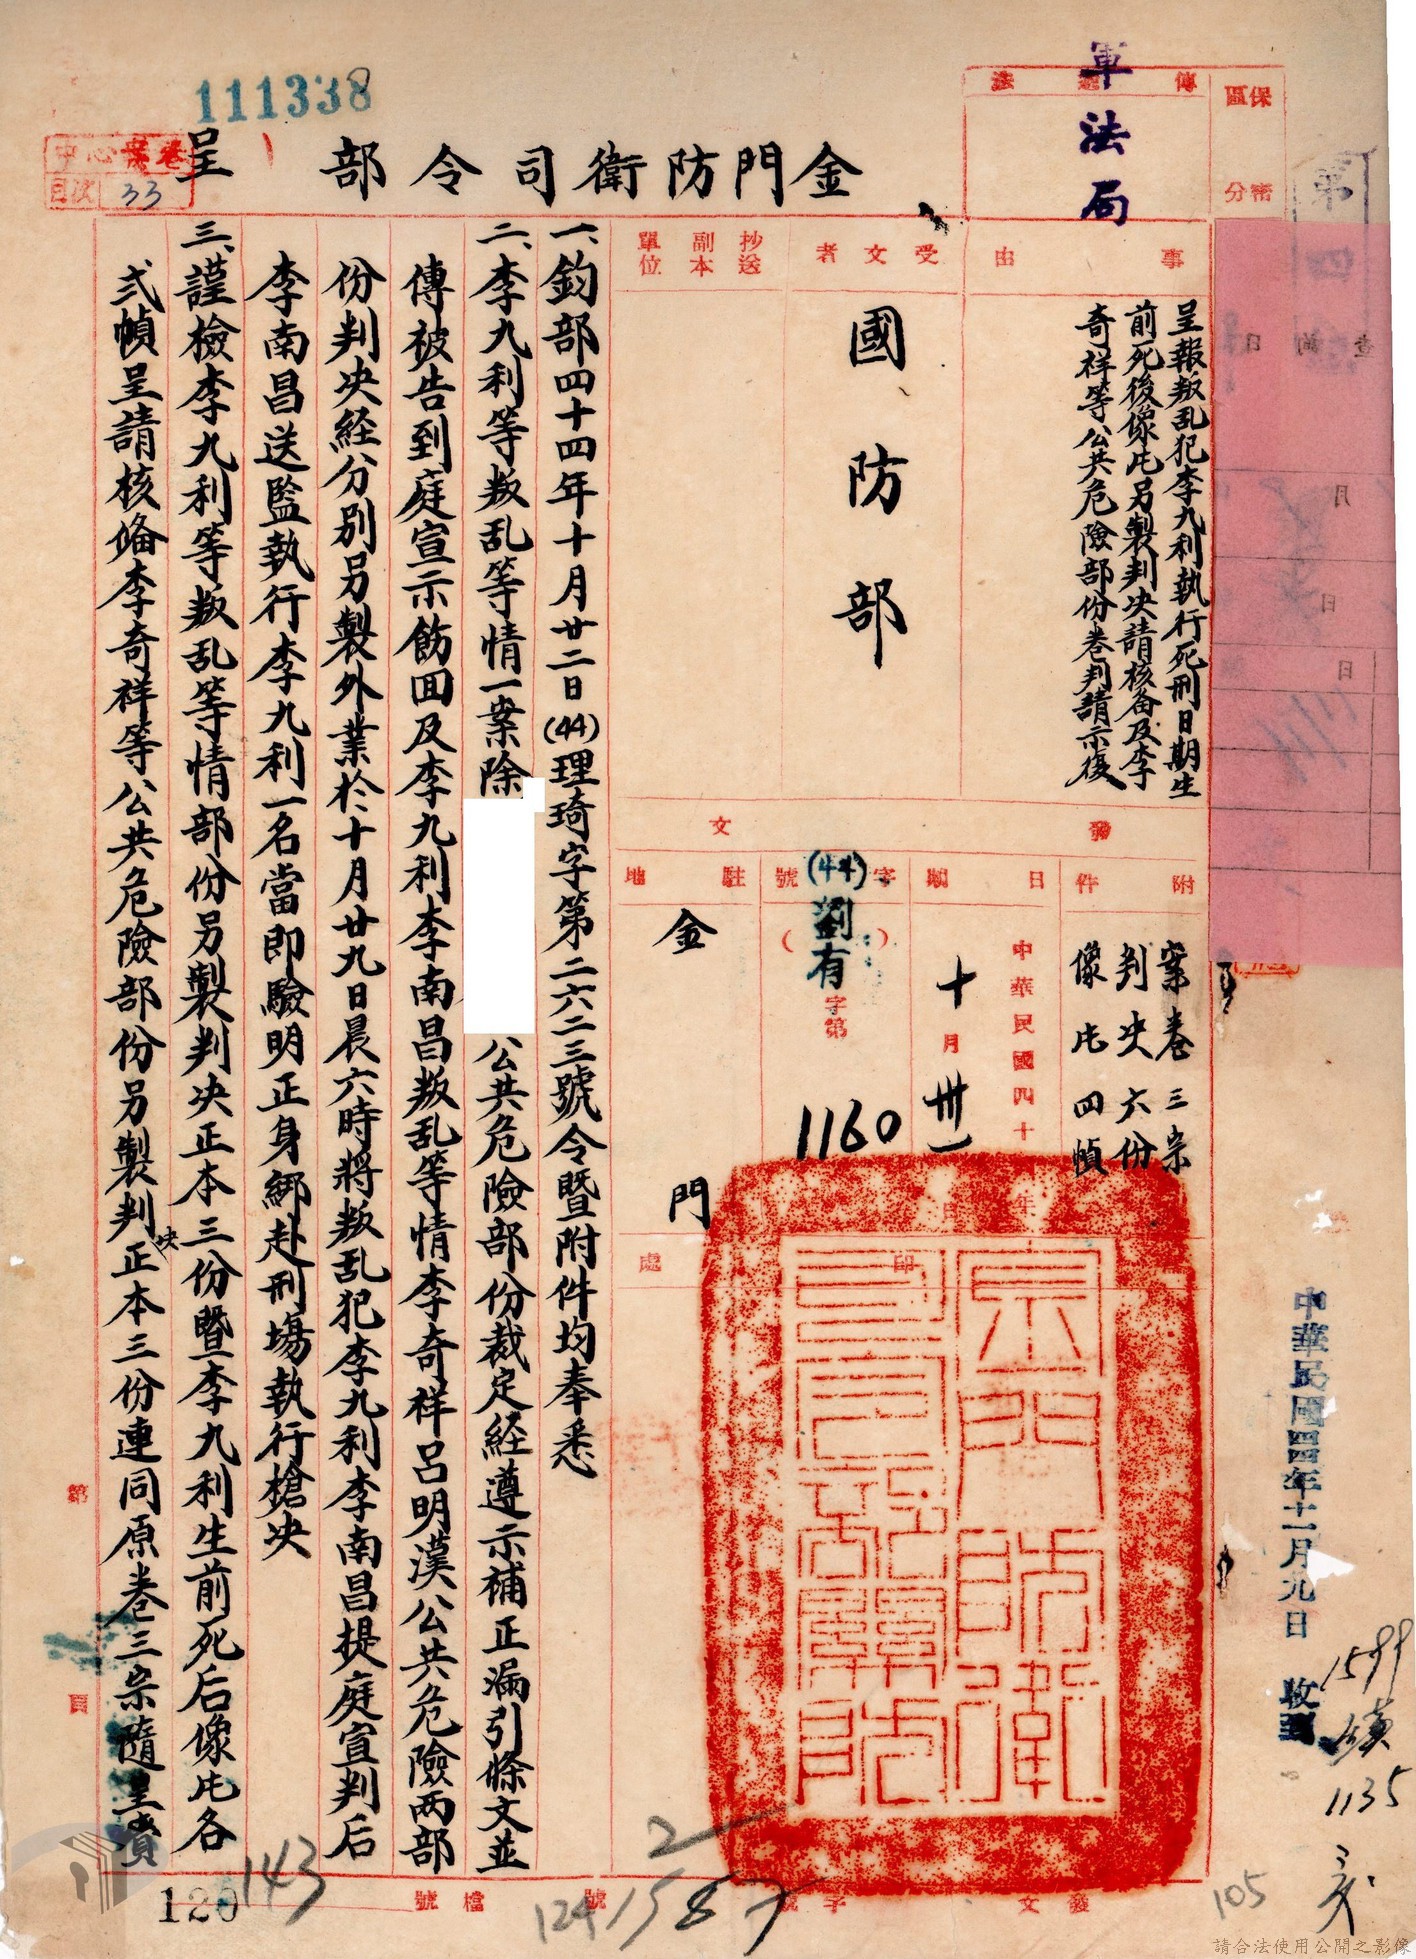 111338
中心案卷
目次 33
軍法局
傳遞法
保密
區分
金門防衛司令部 呈
第四
事由
受文者
抄送
副本
單位
呈報叛乱犯李九利執行死刑日期生
前死後像片另製判决請核备及李
奇祥等公共危險部份卷判請示復
國防部
查詢
月
日
日
發文
附件
日期
字號
駐地
案卷三宗
判决六份
像片四幀
中華民國四十 年
十月卅一日
(44)劉有字第
1160
金門
印
處
一、鈞部四十四年十月廿二日(44)理琦字第二六二三號令暨附件均奉悉
二、李九利等叛乱等情一案除
公共危險部份裁定経遵示補正漏引條文並
傳被告到庭宣示飭回及李九利李南昌叛乱等情李奇祥呂明漢公共危險两部
份判决経分別另製外業於十月廿九日晨六時將叛乱犯李九利李南昌提庭宣判后
李南昌送監執行李九利一名當即驗明正身綁赴刑場執行槍决
三、謹檢李九利等叛乱等情部份另製判决正本三份暨李九利生前死后像片各
弍幀呈請核俻李奇祥等公共危險部份另製判决正本三份連同原卷三宗隨呈賫
中華民國四四年十一月九日 收到
1599
1135
第 頁
2
1587
124
143
120
105
檔號
發文字號
請合法使用公開之影像